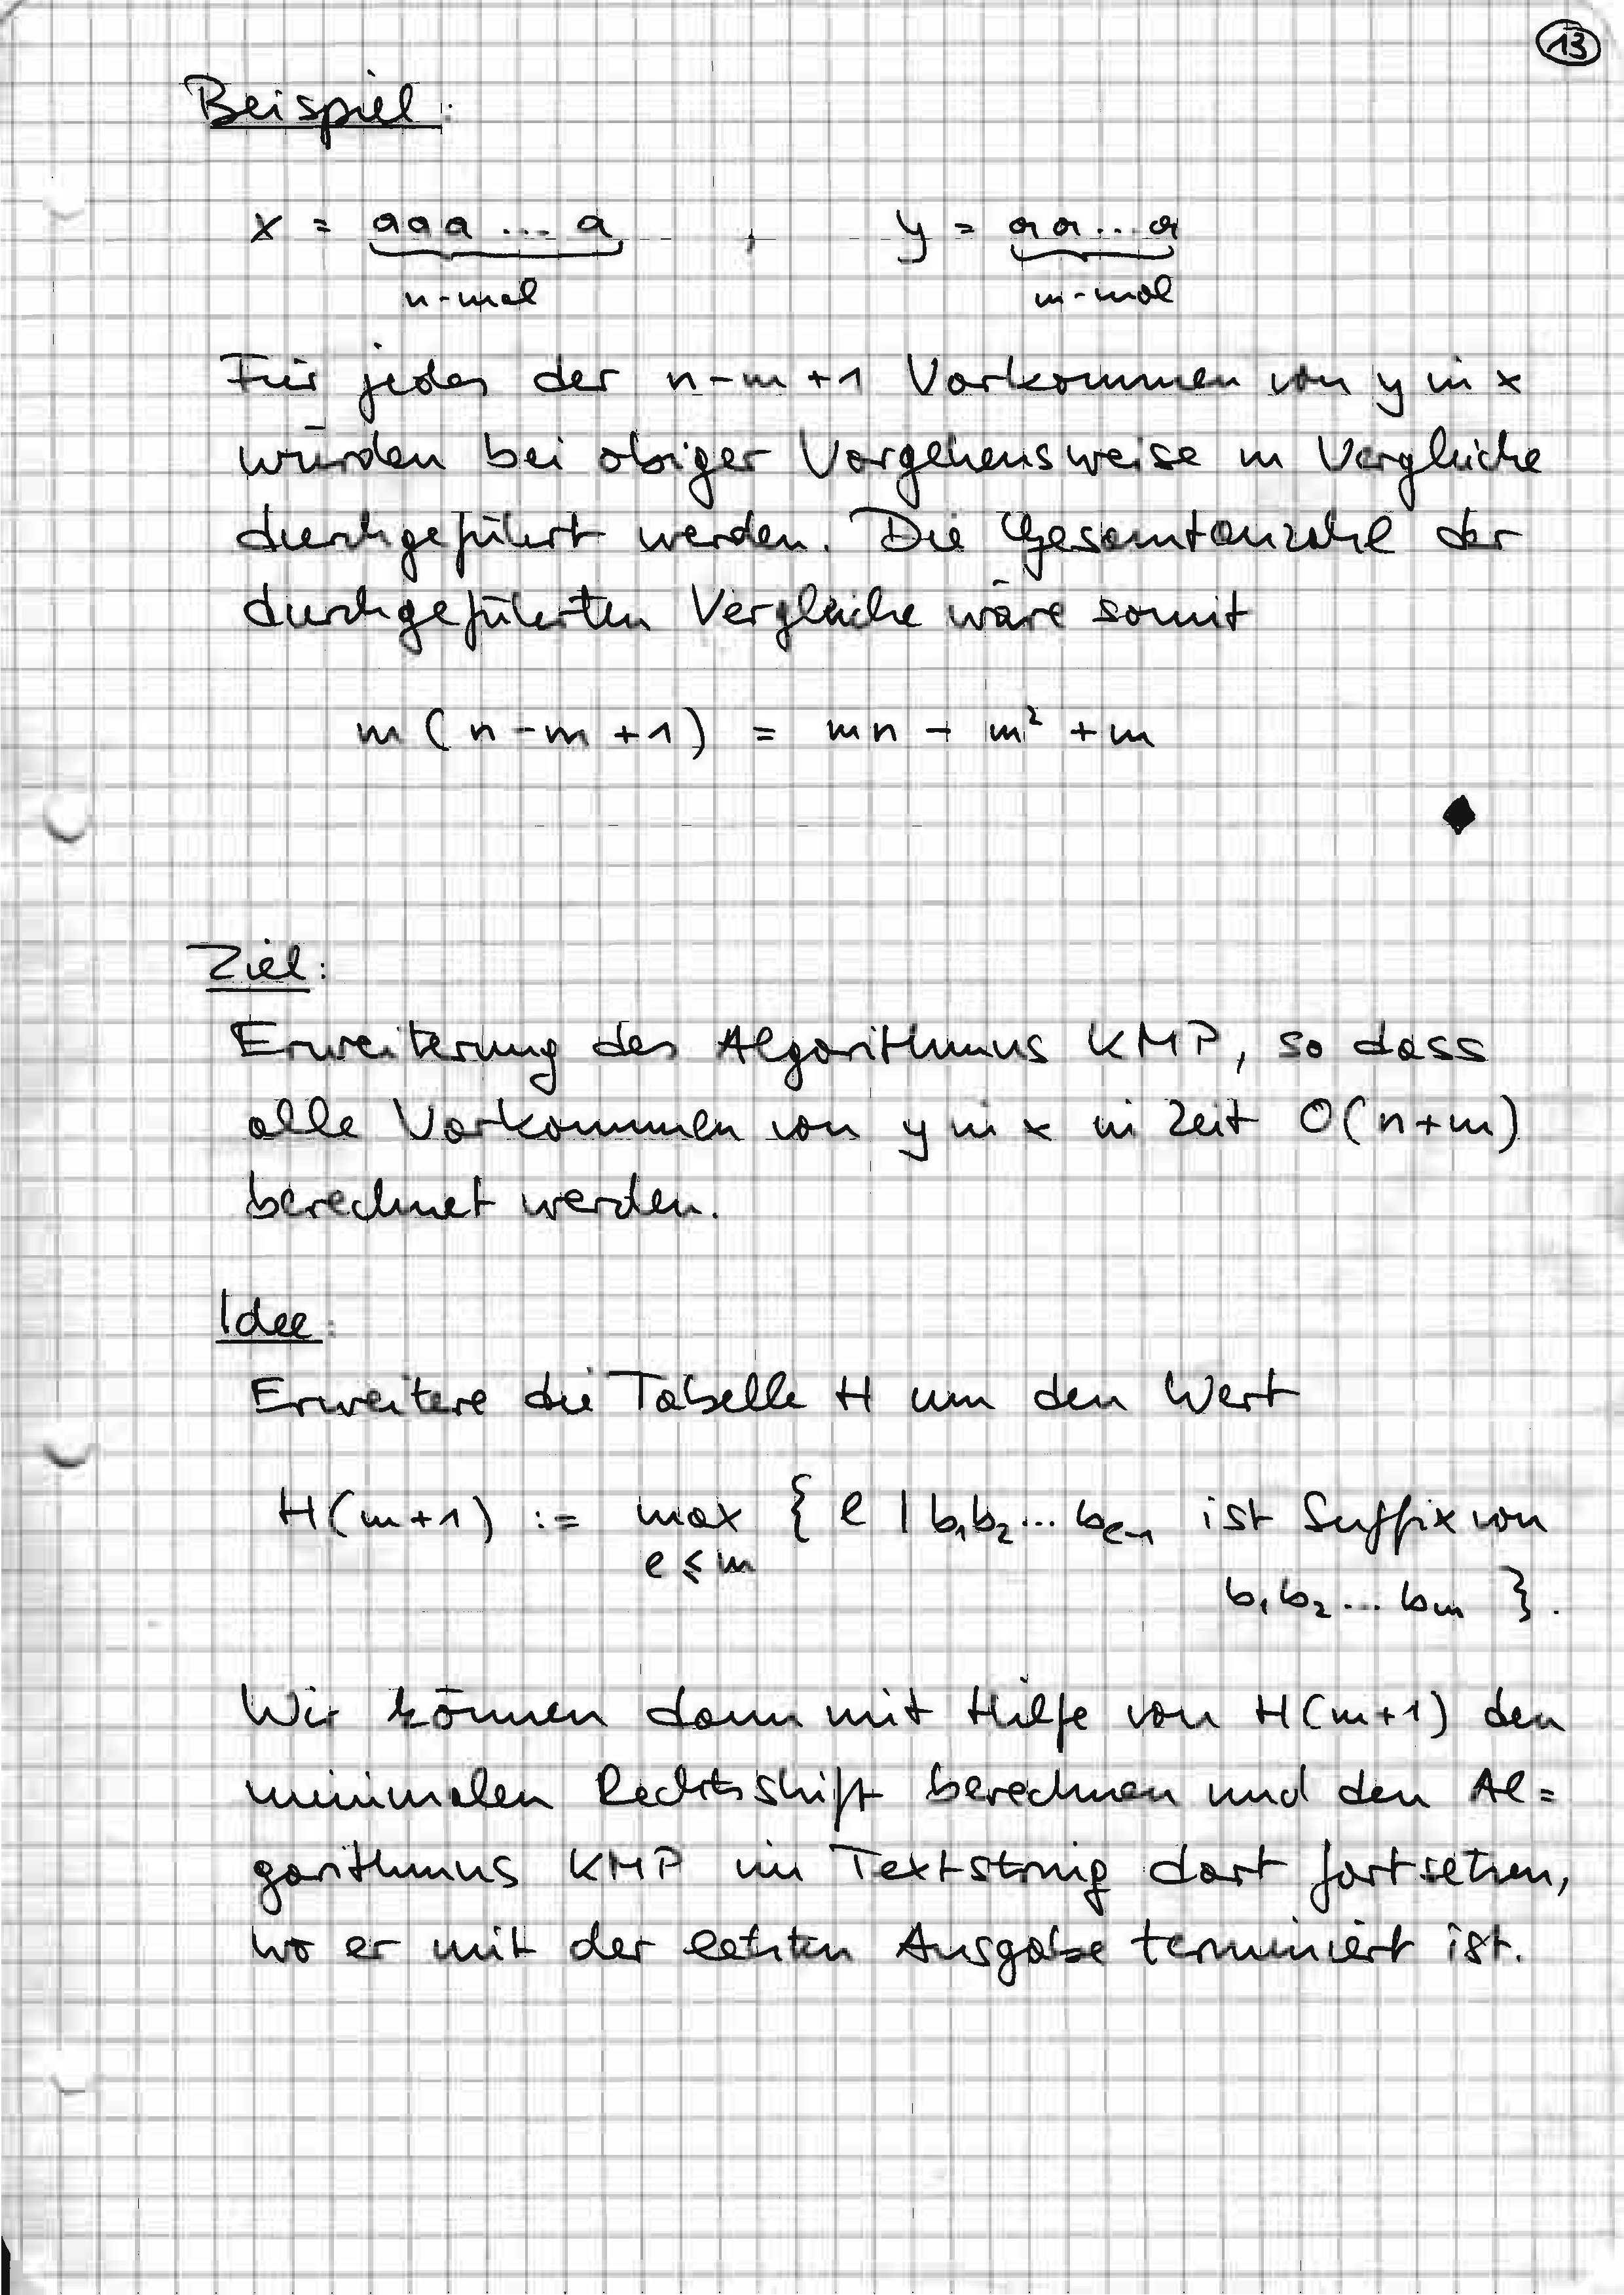 13
Beispiel:
x = aaa ... a , y = aa...a
n-mal m-mal
Für jedes der n-m+1 Vorkommen von y in x
würden bei obiger Vorgehensweise m Vergleiche
durchgeführt werden. Die Gesamtanzahl der
durchgeführten Vergleiche wäre somit
m (n-m+1) = mn - m² + m
◆
Ziel:
Erweiterung des Algorithmus KMP, so dass
alle Vorkommen von y in x in Zeit O(n+m)
berechnet werden.
Idee:
Erweitere die Tabelle H um den Wert
H(m+1) := max { l | b₁b₂...bₗ₋₁ ist Suffix von
l ≤ m
b₁b₂...bₘ }.
Wir können dann mit Hilfe von H(m+1) den
minimalen Rechtsshift berechnen und den Al=
gorithmus KMP im Textstring dort fortsetzen,
wo er mit der letzten Ausgabe terminiert ist.